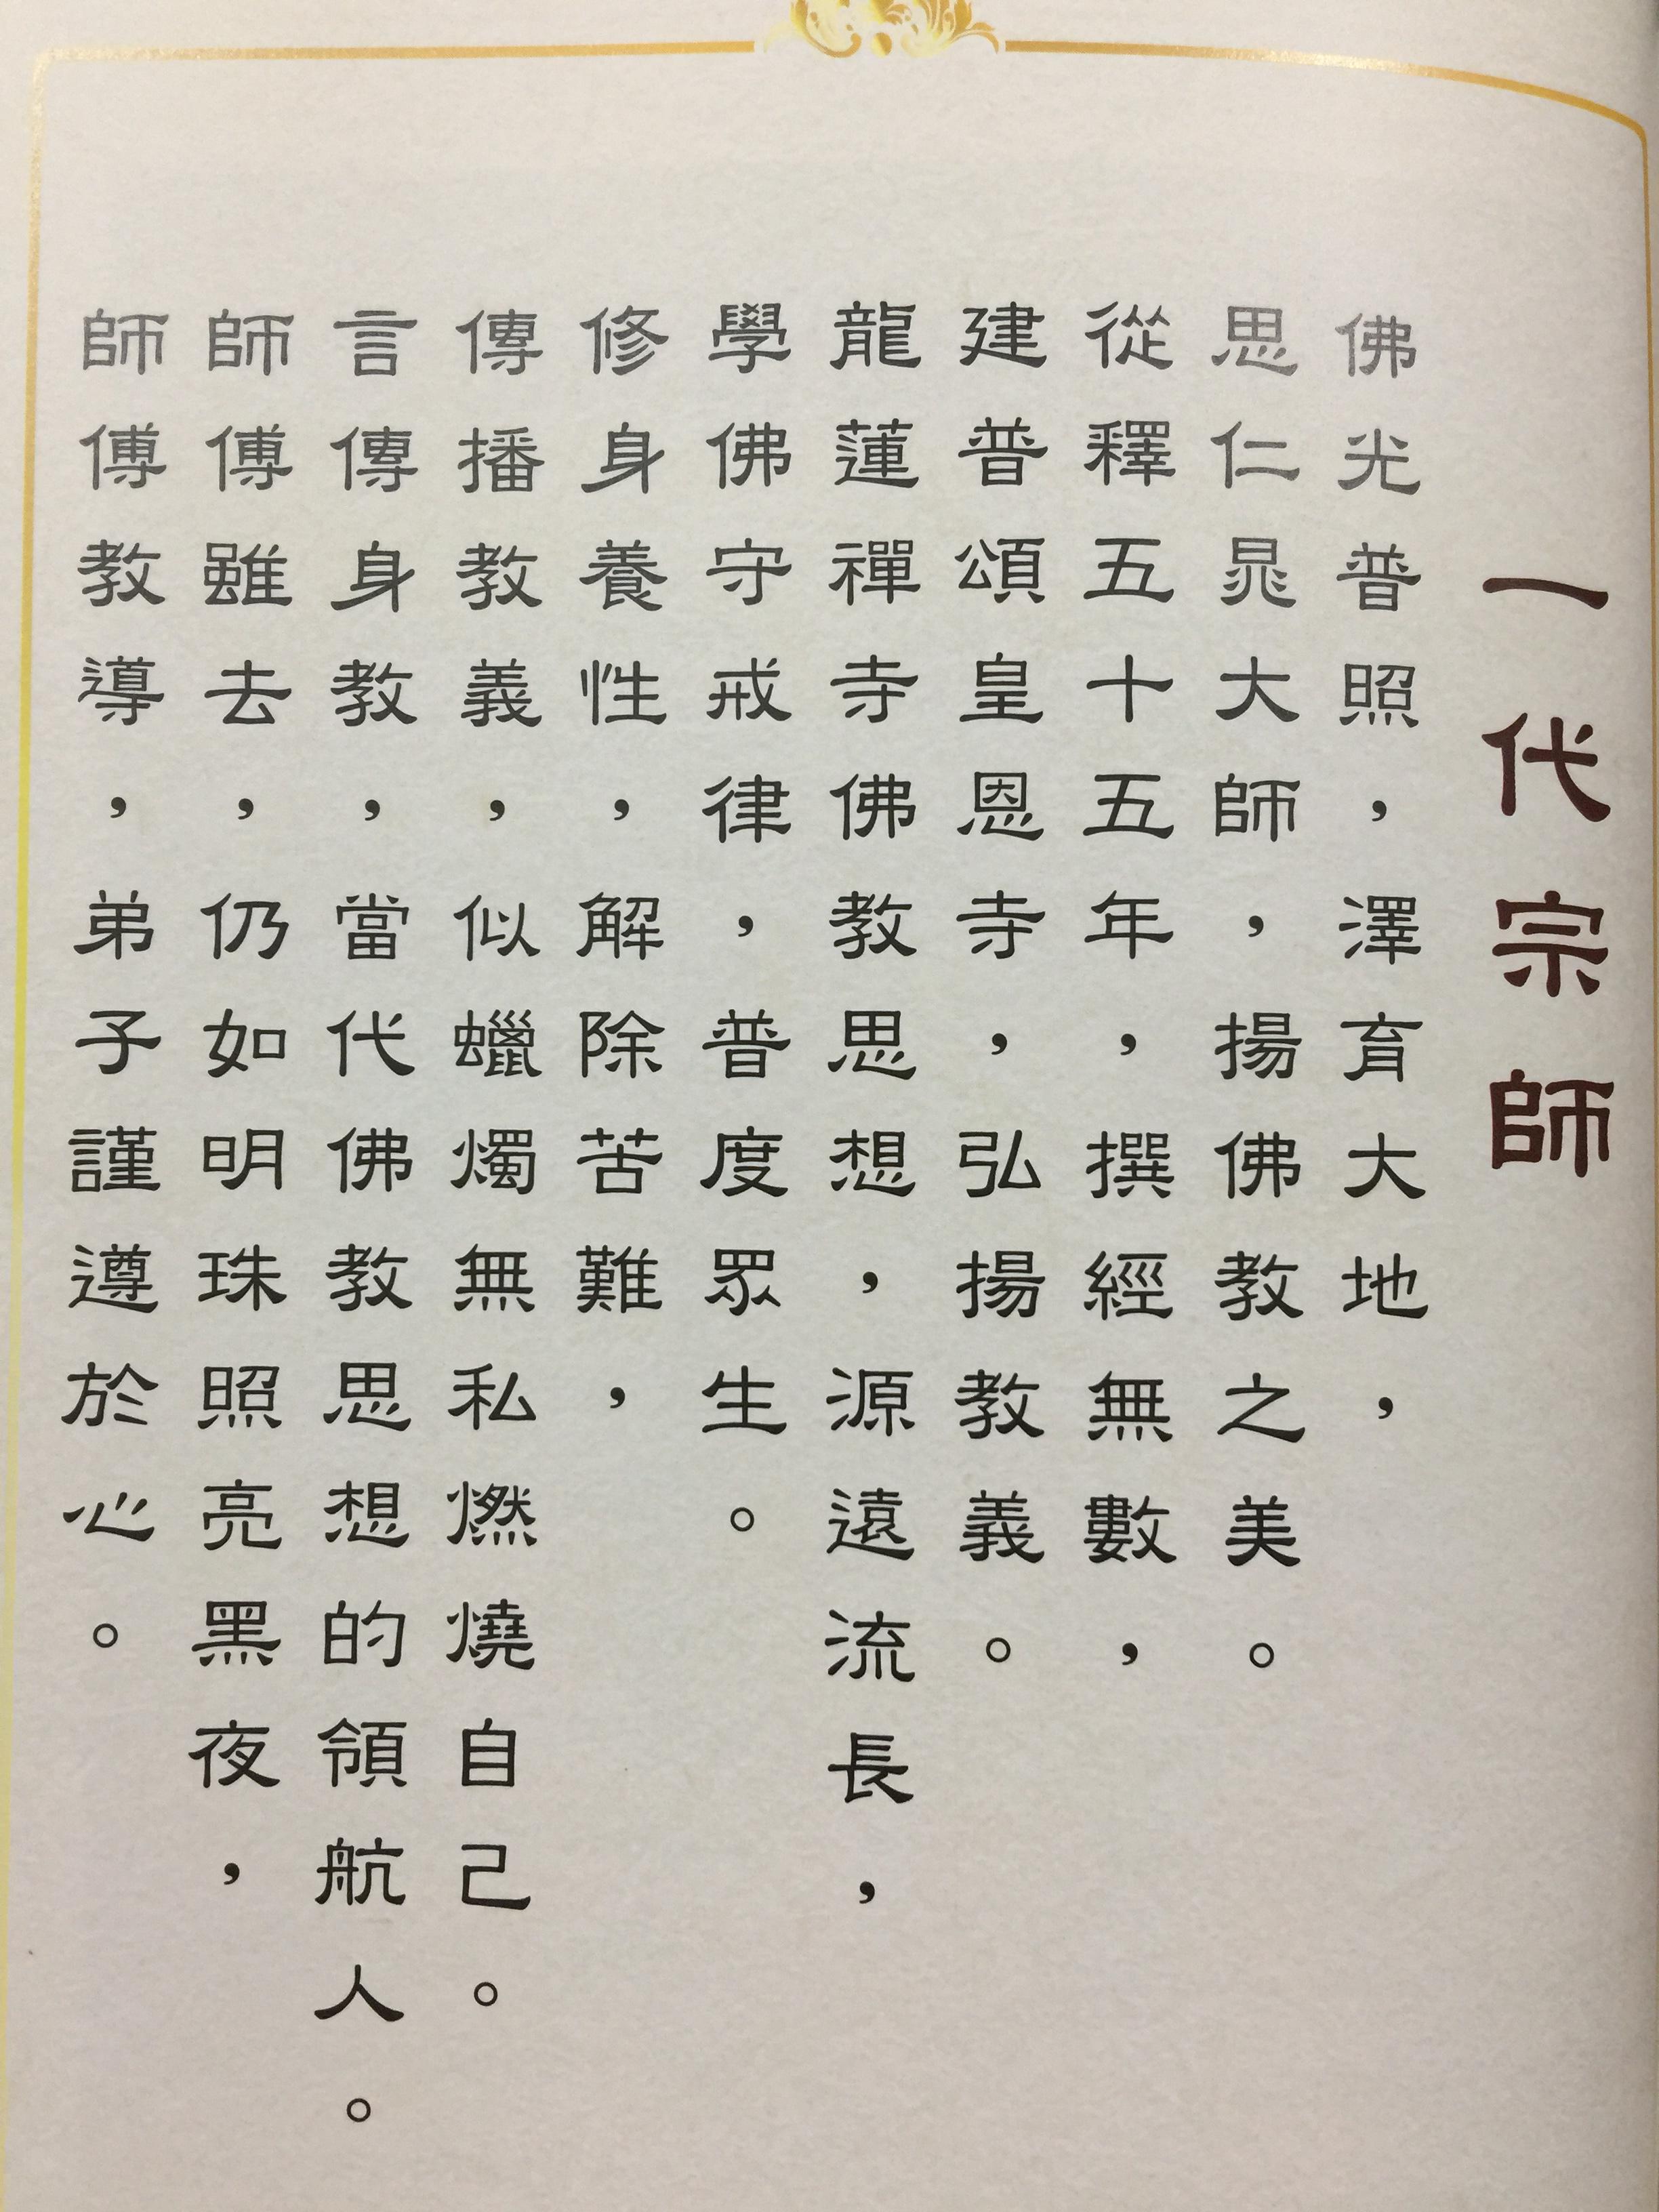 一代宗師
佛光普照，澤育大地，
思仁晁大師，揚佛教之美。
從釋五十五年，撰經無數，
建普頌皇恩寺，弘揚教義。
龍蓮禪寺佛教思想，源遠流長，
學佛守戒律，普度眾生。
修身養性，解除苦難，
傳播教義，似蠟燭無私燃燒自己。
言傳身教，當代佛教思想的領航人。
師傅雖去，仍如明珠照亮黑夜，
師傅教導，弟子謹遵於心。